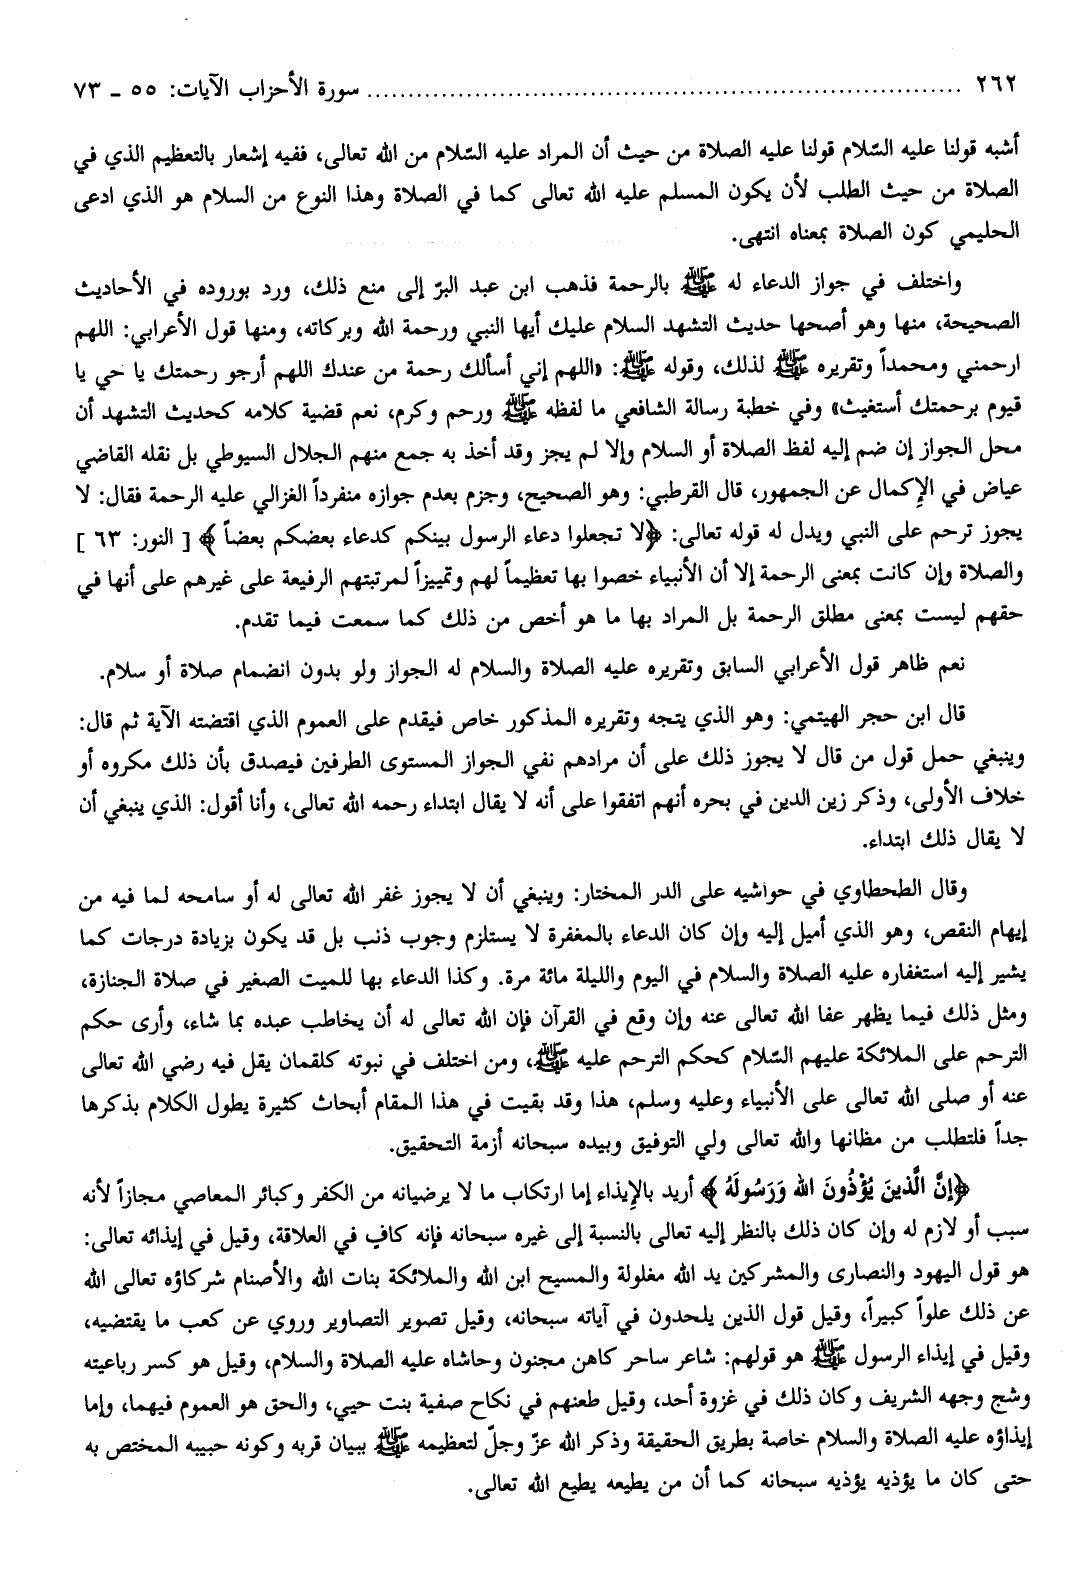 ٢٦٢ ........................................................................ سورة الأحزاب الآيات: ٥٥ ـ ٧٣
أشبه قولنا عليه السّلام قولنا عليه الصلاة من حيث أن المراد عليه السّلام من الله تعالى، ففيه إشعار بالتعظيم الذي في
الصلاة من حيث الطلب لأن يكون المسلم عليه الله تعالى كما في الصلاة وهذا النوع من السلام هو الذي ادعى
الحليمي كون الصلاة بمعناه انتهى.
واختلف في جواز الدعاء له ﷺ بالرحمة فذهب ابن عبد البرّ إلى منع ذلك، ورد بوروده في الأحاديث
الصحيحة، منها وهو أصحها حديث التشهد السلام عليك أيها النبي ورحمة الله وبركاته، ومنها قول الأعرابي: اللهم
ارحمني ومحمداً وتقريره ﷺ لذلك، وقوله ﷺ: «اللهم إني أسألك رحمة من عندك اللهم أرجو رحمتك يا حي يا
قيوم برحمتك أستغيث» وفي خطبة رسالة الشافعي ما لفظه ﷺ ورحم وكرم، نعم قضية كلامه كحديث التشهد أن
محل الجواز إن ضم إليه لفظ الصلاة أو السلام وإلا لم يجز وقد أخذ به جمع منهم الجلال السيوطي بل نقله القاضي
عياض في الإكمال عن الجمهور، قال القرطبي: وهو الصحيح، وجزم بعدم جوازه منفرداً الغزالي عليه الرحمة فقال: لا
يجوز ترحم على النبي ويدل له قوله تعالى: ﴿لا تجعلوا دعاء الرسول بينكم كدعاء بعضكم بعضاً﴾ [ النور: ٦٣ ]
والصلاة وإن كانت بمعنى الرحمة إلا أن الأنبياء خصوا بها تعظيماً لهم وتمييزاً لمرتبتهم الرفيعة على غيرهم على أنها في
حقهم ليست بمعنى مطلق الرحمة بل المراد بها ما هو أخص من ذلك كما سمعت فيما تقدم.
نعم ظاهر قول الأعرابي السابق وتقريره عليه الصلاة والسلام له الجواز ولو بدون انضمام صلاة أو سلام.
قال ابن حجر الهيتمي: وهو الذي يتجه وتقريره المذكور خاص فيقدم على العموم الذي اقتضته الآية ثم قال:
وينبغي حمل قول من قال لا يجوز ذلك على أن مرادهم نفي الجواز المستوى الطرفين فيصدق بأن ذلك مكروه أو
خلاف الأولى، وذكر زين الدين في بحره أنهم اتفقوا على أنه لا يقال ابتداء رحمه الله تعالى، وأنا أقول: الذي ينبغي أن
لا يقال ذلك ابتداء.
وقال الطحطاوي في حواشيه على الدر المختار: وينبغي أن لا يجوز غفر الله تعالى له أو سامحه لما فيه من
إيهام النقص، وهو الذي أميل إليه وإن كان الدعاء بالمغفرة لا يستلزم وجوب ذنب بل قد يكون بزيادة درجات كما
يشير إليه استغفاره عليه الصلاة والسلام في اليوم والليلة مائة مرة. وكذا الدعاء بها للميت الصغير في صلاة الجنازة،
ومثل ذلك فيما يظهر عفا الله تعالى عنه وإن وقع في القرآن فإن الله تعالى له أن يخاطب عبده بما شاء، وأرى حكم
الترحم على الملائكة عليهم السّلام كحكم الترحم عليه ﷺ، ومن اختلف في نبوته كلقمان يقل فيه رضي الله تعالى
عنه أو صلى الله تعالى على الأنبياء وعليه وسلم، هذا وقد بقيت في هذا المقام أبحاث كثيرة يطول الكلام بذكرها
جداً فلتطلب من مظانها والله تعالى ولي التوفيق وبيده سبحانه أزمة التحقيق.
﴿إنَّ الَّذينَ يُؤْذُونَ الله وَرَسُولَهُ﴾ أريد بالإيذاء إما ارتكاب ما لا يرضيانه من الكفر وكبائر المعاصي مجازاً لأنه
سبب أو لازم له وإن كان ذلك بالنظر إليه تعالى بالنسبة إلى غيره سبحانه فإنه كافٍ في العلاقة، وقيل في إيذائه تعالى:
هو قول اليهود والنصارى والمشركين يد الله مغلولة والمسيح ابن الله والملائكة بنات الله والأصنام شركاؤه تعالى الله
عن ذلك علواً كبيراً، وقيل قول الذين يلحدون في آياته سبحانه، وقيل تصوير التصاوير وروي عن كعب ما يقتضيه،
وقيل في إيذاء الرسول ﷺ هو قولهم: شاعر ساحر كاهن مجنون وحاشاه عليه الصلاة والسلام، وقيل هو كسر رباعيته
وشج وجهه الشريف وكان ذلك في غزوة أحد، وقيل طعنهم في نكاح صفية بنت حيي، والحق هو العموم فيهما، وإما
إيذاؤه عليه الصلاة والسلام خاصة بطريق الحقيقة وذكر الله عزّ وجلّ لتعظيمه ﷺ ببيان قربه وكونه حبيبه المختص به
حتى كان ما يؤذيه يؤذيه سبحانه كما أن من يطيعه يطيع الله تعالى.